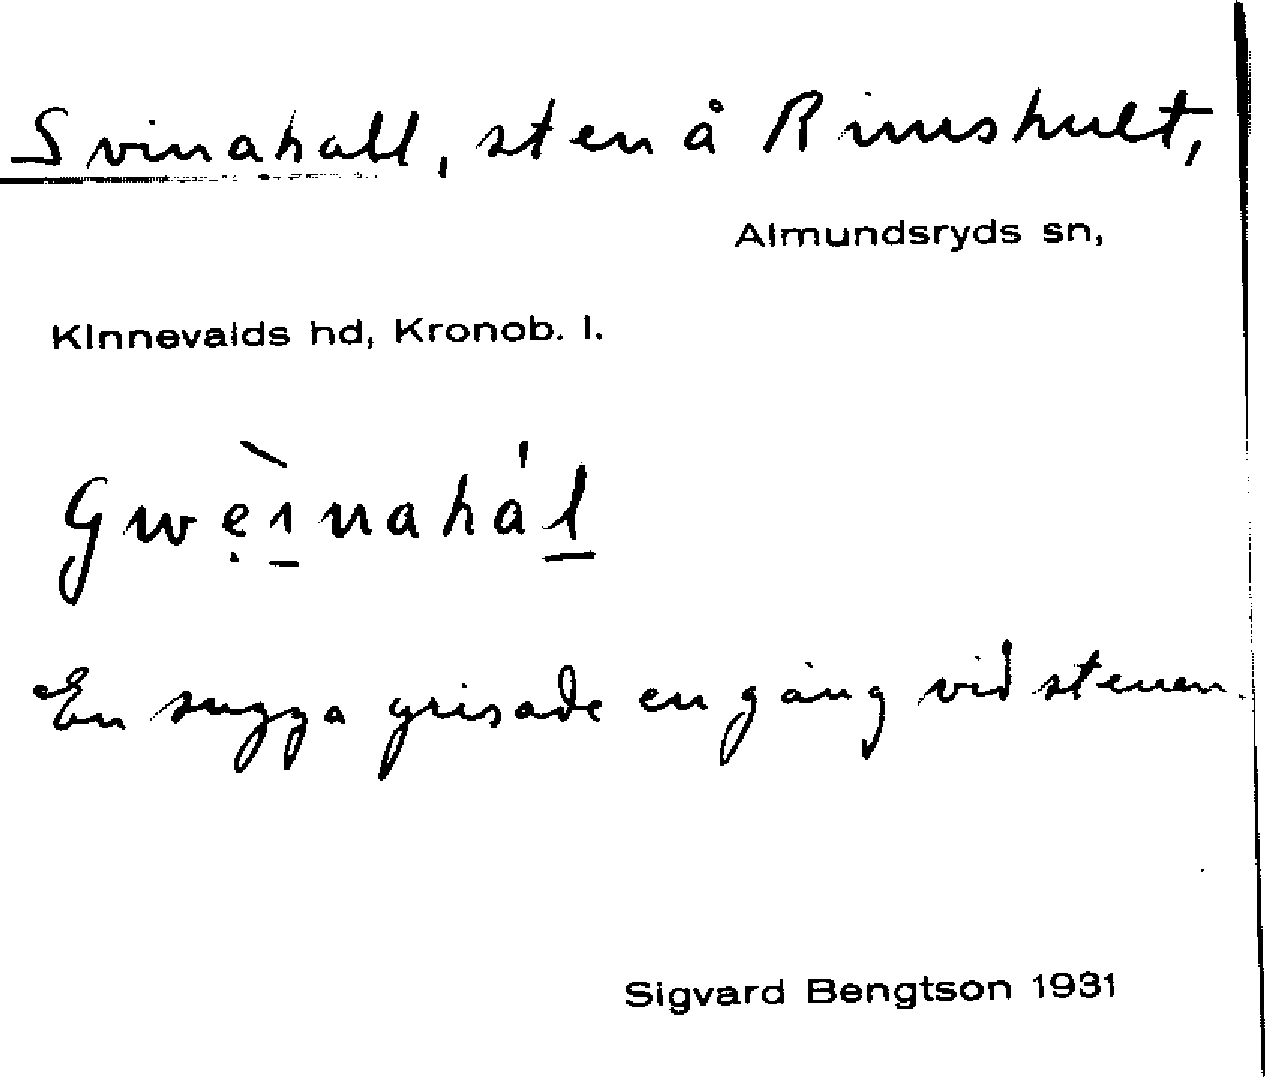 Svinahall, sten å Rimshult,
Almundsryds sn,
Kinnevalds hd, Kronob. l.
En sugga grisade en gång vid stenen.
Sigvard Bengtson 1931